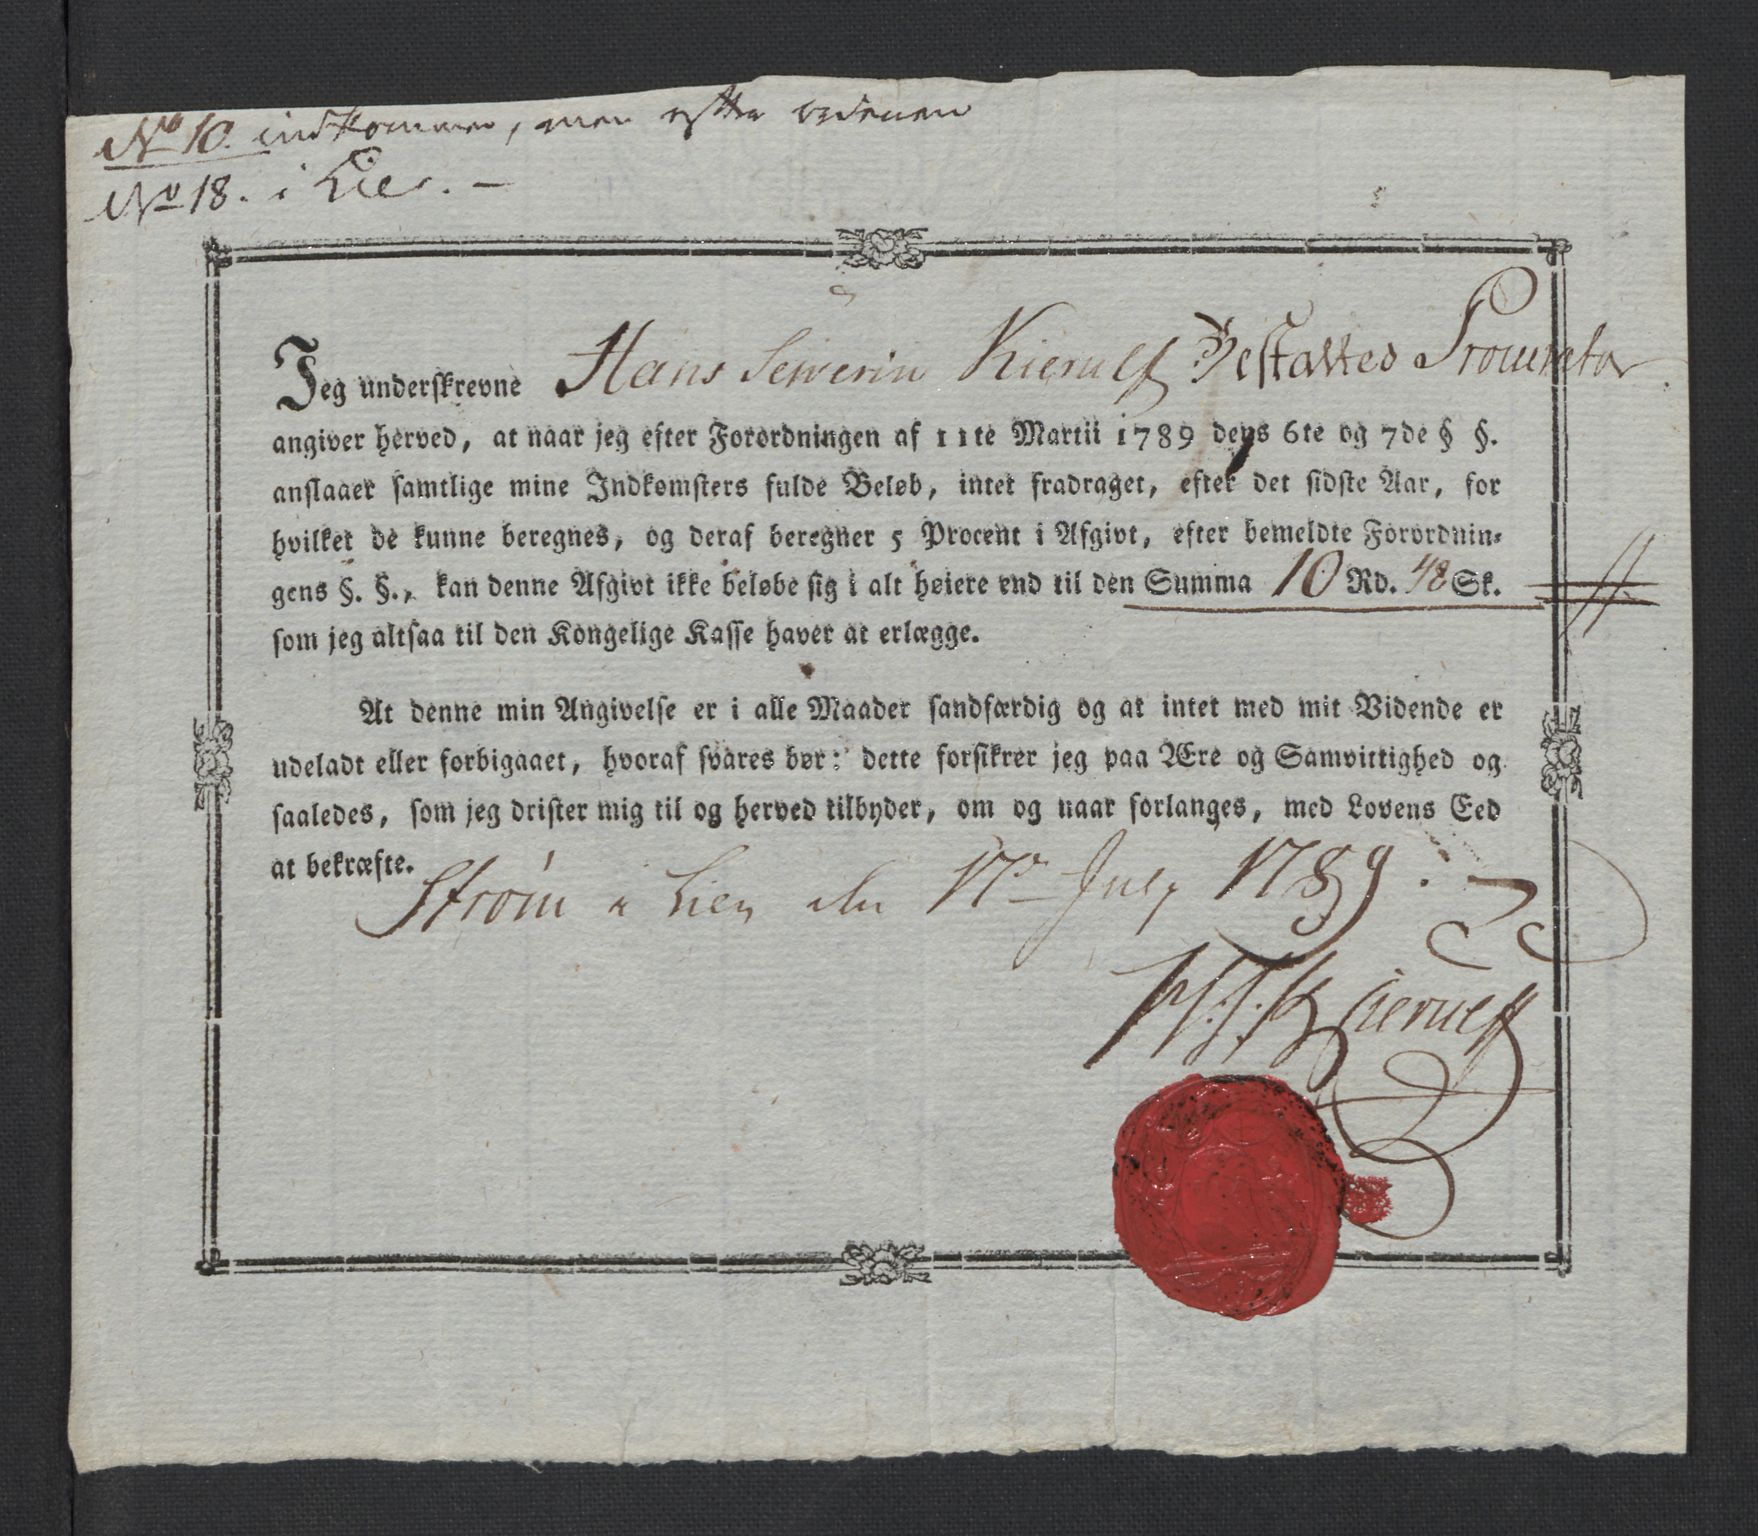 No 10. indkommen, men efter ordenen
No 18. i Lier. –
Jeg underskrevne Hans Sewerin Kierulf Bestalted Procurator
angiver herved, at naar jeg efter Forordningen af 11te Martii 1789 dens 6te og 7de § §.
anslaaer samtlige mine Indkomsters fulde Beløb, intet fradraget, efter det sidste Aar, for
hvilket de kunne beregnes, og deraf beregner 5 Procent i Afgivt, efter bemeldte Forordnin-
gens §. §., kan denne Afgivt ikke beløbe sig i alt høiere end til den Summa 10 Rd. 48 Sk.
som jeg altsaa til den Kongelige Kasse haver at erlægge.
At denne min Angivelse er i alle Maader sandfærdig og at intet med mit Vidende er
udeladt eller forbigaaet, hvoraf svares bør: dette forsikrer jeg paa Ære og Samvittighed og
saaledes, som jeg drister mig til og herved tilbyder, om og naar forlanges, med Lovens Eed
at bekræfte.
Strøm i Lier den 17de July 1789.
H. S. Kierulff